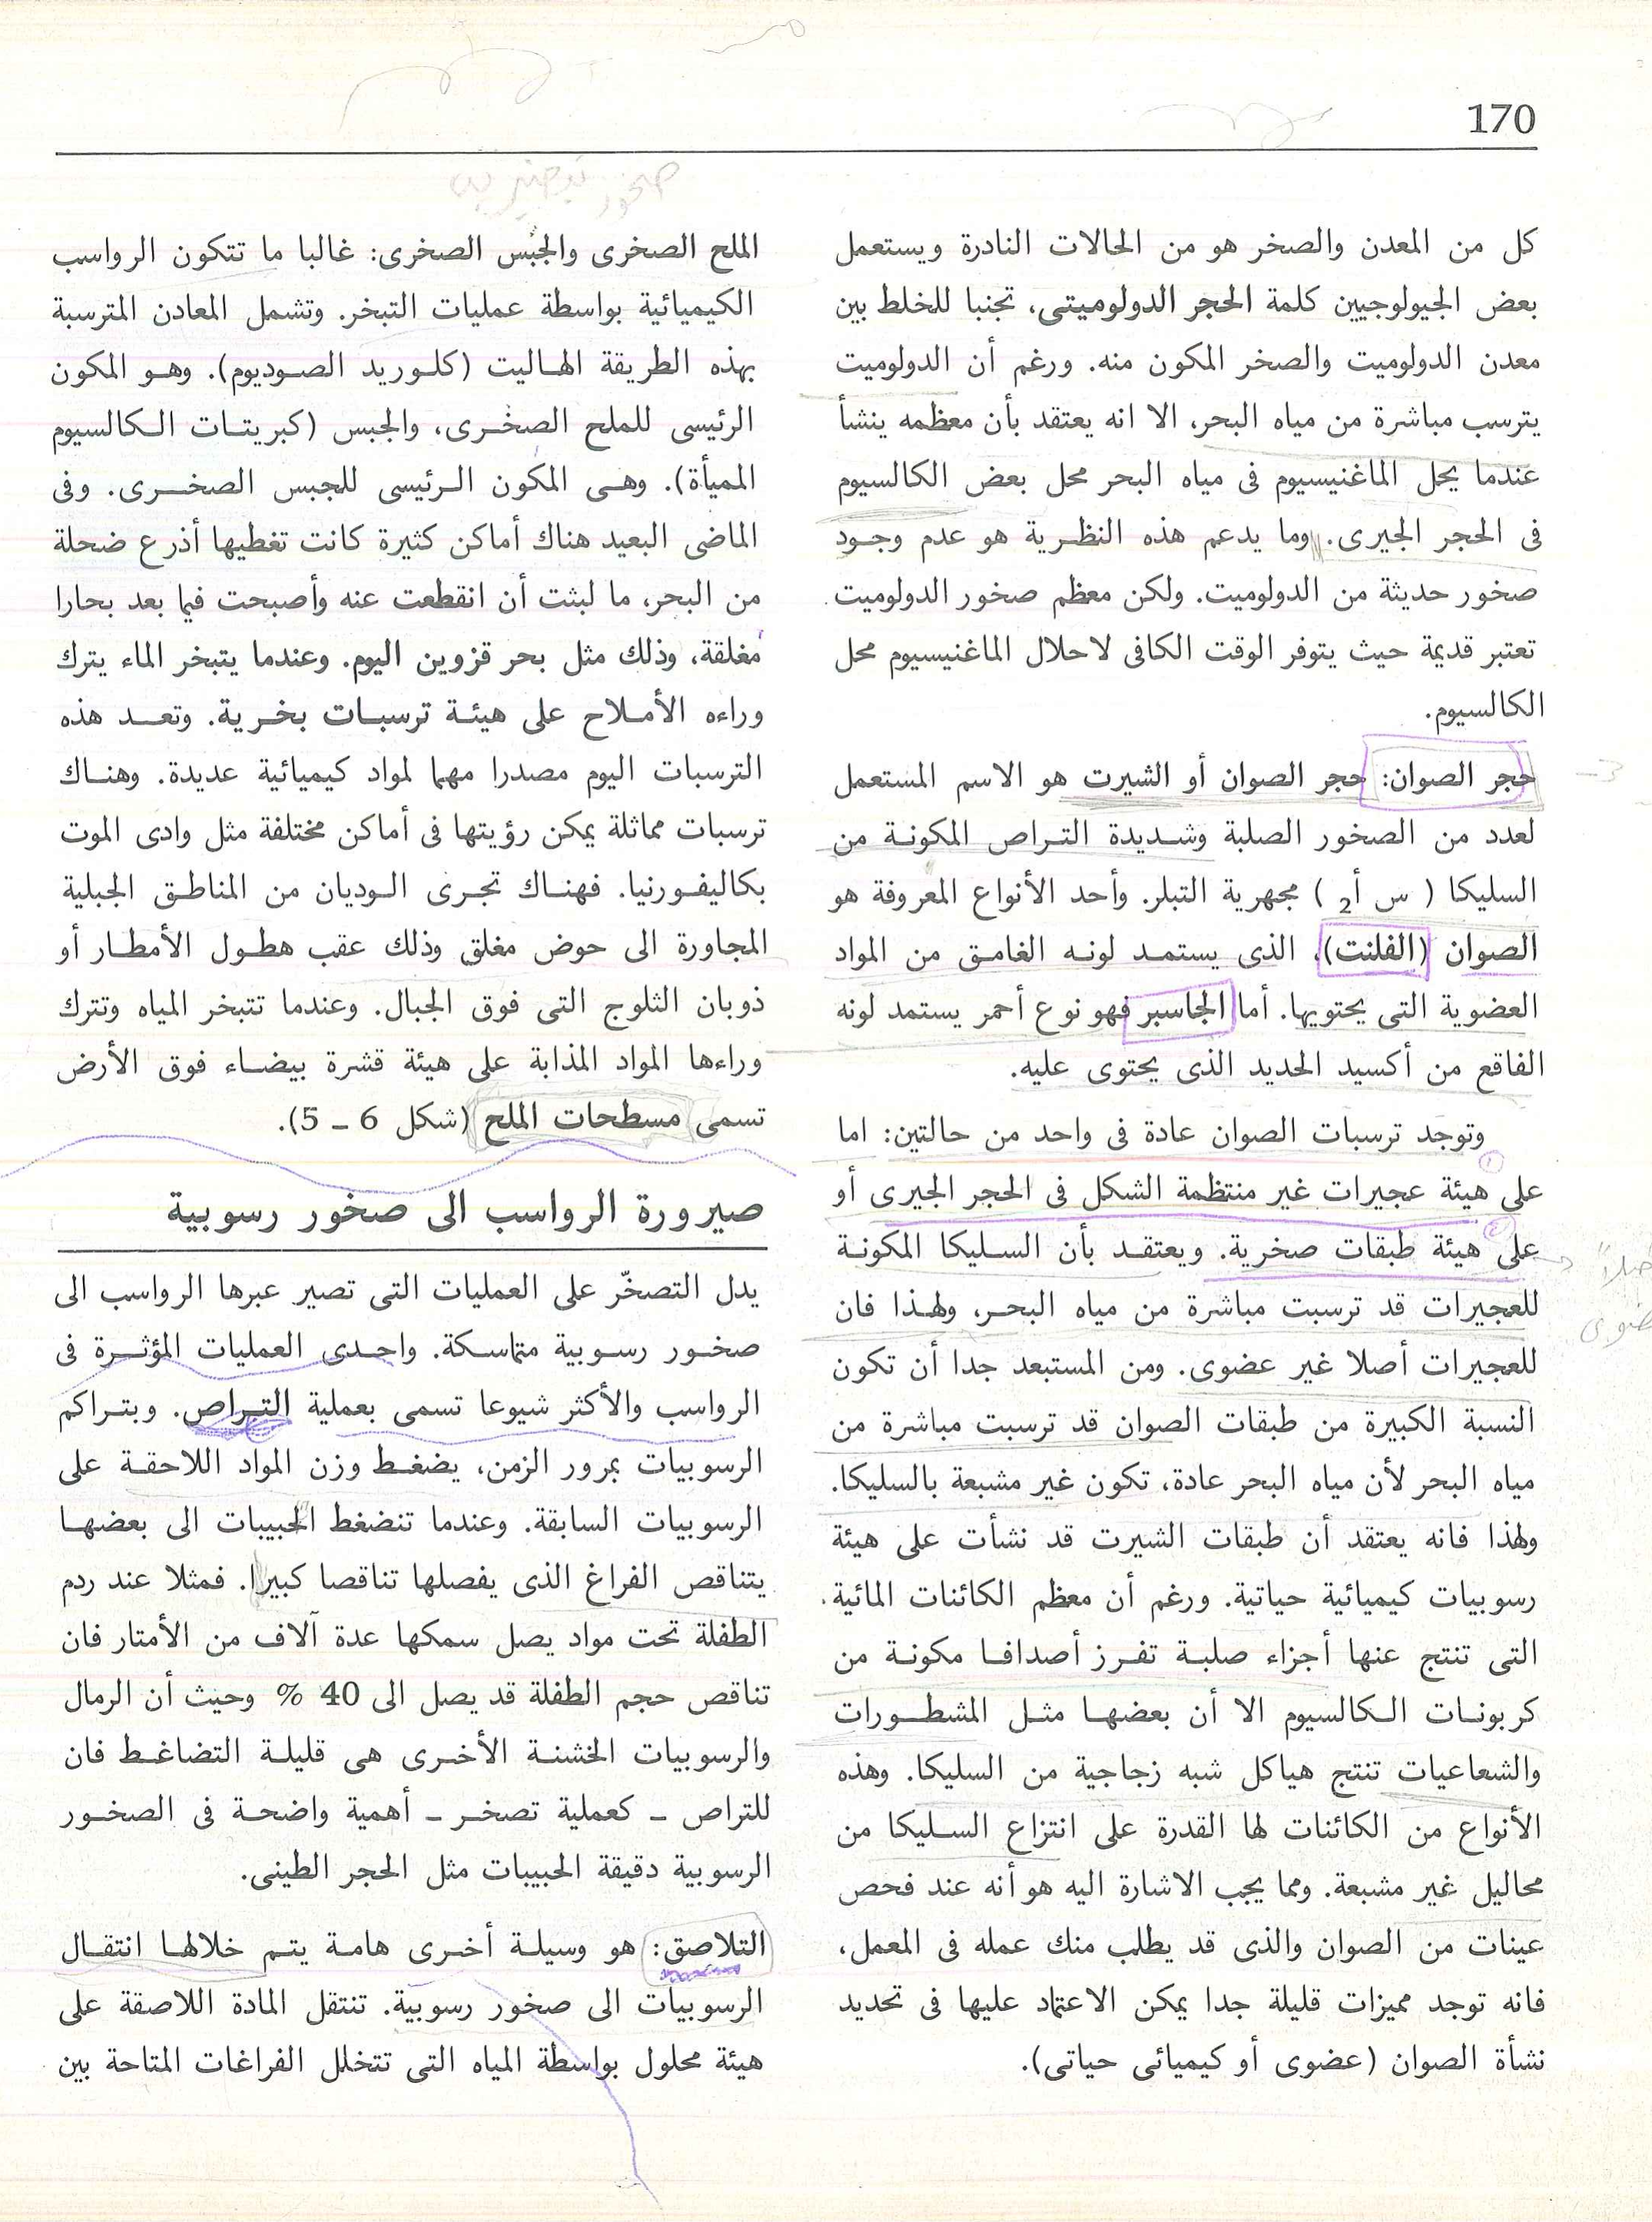 170
صخور
كل من المعدن والصخر هو من الحالات النادرة ويستعمل
بعض الجيولوجيين كلمة الحجر الدولوميتى، تجنبا للخلط بين
معدن الدولوميت والصخر المكون منه. ورغم أن الدولوميت
يترسب مباشرة من مياه البحر، الا انه يعتقد بأن معظمه ينشأ
عندما يحل الماغنيسيوم فى مياه البحر محل بعض الكالسيوم
فى الحجر الجيرى. وما يدعم هذه النظرية هو عدم وجود
صخور حديثة من الدولوميت. ولكن معظم صخور الدولوميت
تعتبر قديمة حيث يتوفر الوقت الكافى لاحلال الماغنيسيوم محل
الكالسيوم.
حجر الصوان: حجر الصوان أو الشيرت هو الاسم المستعمل
لعدد من الصخور الصلبة وشديدة التراص المكونة من
السليكا ( س أ2 ) مجهرية التبلر. وأحد الأنواع المعروفة هو
الصوان (الفلنت)، الذى يستمد لونه الغامق من المواد
العضوية التى يحتويها. أما الجاسبر فهو نوع أحمر يستمد لونه
الفاقع من أكسيد الحديد الذى يحتوى عليه.
وتوجد ترسبات الصوان عادة فى واحد من حالتين: اما
على هيئة عجيرات غير منتظمة الشكل فى الحجر الجيرى أو
على هيئة طبقات صخرية. ويعتقد بأن السليكا المكونة
للعجيرات قد ترسبت مباشرة من مياه البحر، ولهذا فان
للعجيرات أصلا غير عضوى. ومن المستبعد جدا أن تكون
النسبة الكبيرة من طبقات الصوان قد ترسبت مباشرة من
مياه البحر لأن مياه البحر عادة، تكون غير مشبعة بالسليكا.
ولهذا فانه يعتقد أن طبقات الشيرت قد نشأت على هيئة
رسوبيات كيميائية حياتية. ورغم أن معظم الكائنات المائية
التى تنتج عنها أجزاء صلبة تفرز أصدافا مكونة من
كربونات الكالسيوم الا أن بعضها مثل المشطورات
والشعاعيات تنتج هياكل شبه زجاجية من السليكا. وهذه
الأنواع من الكائنات لها القدرة على انتزاع السليكا من
محاليل غير مشبعة. ومما يجب الاشارة اليه هو أنه عند فحص
عينات من الصوان والذى قد يطلب منك عمله فى المعمل،
فانه توجد مميزات قليلة جدا يمكن الاعتماد عليها فى تحديد
نشأة الصوان (عضوى أو كيميائى حياتى).
الملح الصخرى والجبس الصخرى: غالبا ما تتكون الرواسب
الكيميائية بواسطة عمليات التبخر. وتشمل المعادن المترسبة
بهذه الطريقة الهاليت (كلوريد الصوديوم). وهو المكون
الرئيسى للملح الصخرى، والجبس (كبريتات الكالسيوم
المميأة). وهى المكون الرئيسى للجبس الصخرى. وفى
الماضى البعيد هناك أماكن كثيرة كانت تغطيها أذرع ضحلة
من البحر، ما لبثت أن انقطعت عنه وأصبحت فيما بعد بحارا
مغلقة، وذلك مثل بحر قزوين اليوم. وعندما يتبخر الماء يترك
وراءه الأملاح على هيئة ترسبات بخرية. وتعد هذه
الترسبات اليوم مصدرا مهما لمواد كيميائية عديدة. وهناك
ترسبات مماثلة يمكن رؤيتها فى أماكن مختلفة مثل وادى الموت
بكاليفورنيا. فهناك تجرى الوديان من المناطق الجبلية
المجاورة الى حوض مغلق وذلك عقب هطول الأمطار أو
ذوبان الثلوج التى فوق الجبال. وعندما تتبخر المياه وتترك
وراءها المواد المذابة على هيئة قشرة بيضاء فوق الأرض
تسمى مسطحات الملح (شكل 6 – 5).
صيرورة الرواسب الى صخور رسوبية
يدل التصخّر على العمليات التى تصير عبرها الرواسب الى
صخور رسوبية متماسكة. واحدى العمليات المؤثرة فى
الرواسب والأكثر شيوعا تسمى بعملية التراص. وبتراكم
الرسوبيات بمرور الزمن، يضغط وزن المواد اللاحقة على
الرسوبيات السابقة. وعندما تنضغط الحبيبات الى بعضها
يتناقص الفراغ الذى يفصلها تناقصا كبيرا. فمثلا عند ردم
الطفلة تحت مواد يصل سمكها عدة آلاف من الأمتار فان
تناقص حجم الطفلة قد يصل الى 40 % وحيث أن الرمال
والرسوبيات الخشنة الأخرى هى قليلة التضاغط فان
للتراص – كعملية تصخر – أهمية واضحة فى الصخور
الرسوبية دقيقة الحبيبات مثل الحجر الطينى.
التلاصق: هو وسيلة أخرى هامة يتم خلالها انتقال
الرسوبيات الى صخور رسوبية. تنتقل المادة اللاصقة على
هيئة محلول بواسطة المياه التى تتخلل الفراغات المتاحة بين